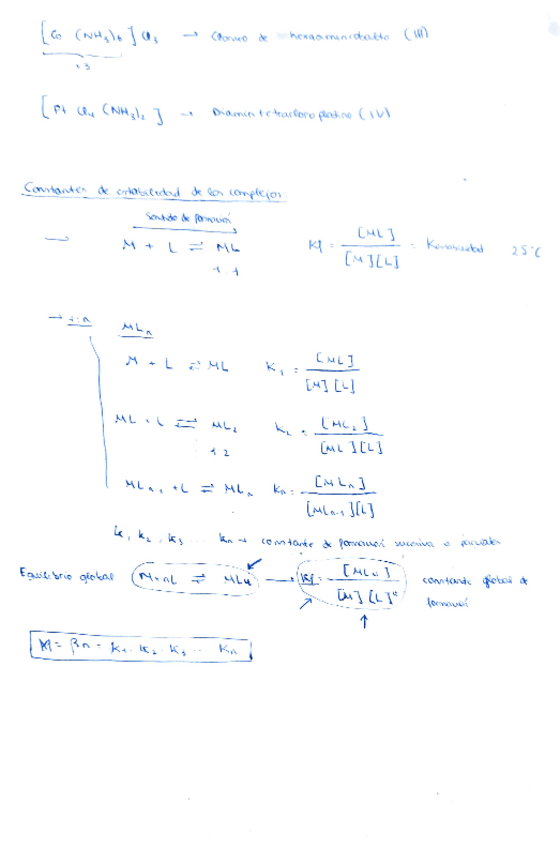 [Co (NH₃)₆] Cl₃ → Cloruro de hexaamincobalto (III)
+3
[Pt Cl₄ (NH₃)₂] → Diamintetracloroplatino (IV)
Constantes de estabilidad de los complejos:
Sentido de formación
→ M + L ⇌ ML Kf = [ML] / [M][L] = Kestabilidad 25°C
1:1
→ 1:n MLn
M + L ⇌ ML K₁ = [ML] / [M][L]
ML + L ⇌ ML₂ K₂ = [ML₂] / [ML][L]
1:2
MLn-1 + L ⇌ MLn Kn = [MLn] / [MLn-1][L]
K₁, K₂, K₃ ... Kn → constante de formación sucesiva o parciales
Equilibrio global M + nL ⇌ MLn → Kf = [MLn] / [M][L]ⁿ constante global de
formación
Kf = βn = K₁ · K₂ · K₃ ... Kn